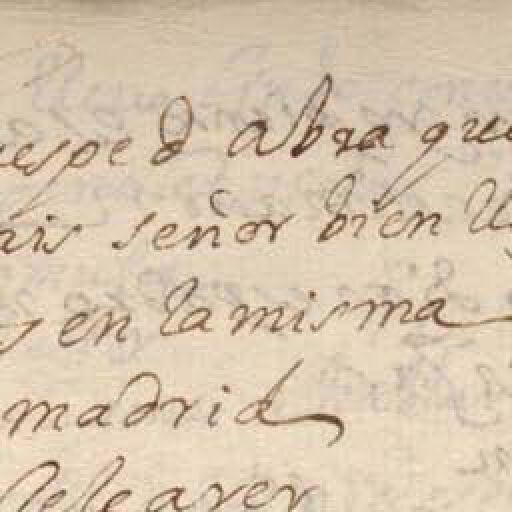 uesped abra que
ais señor bien
y en la misma
madrid